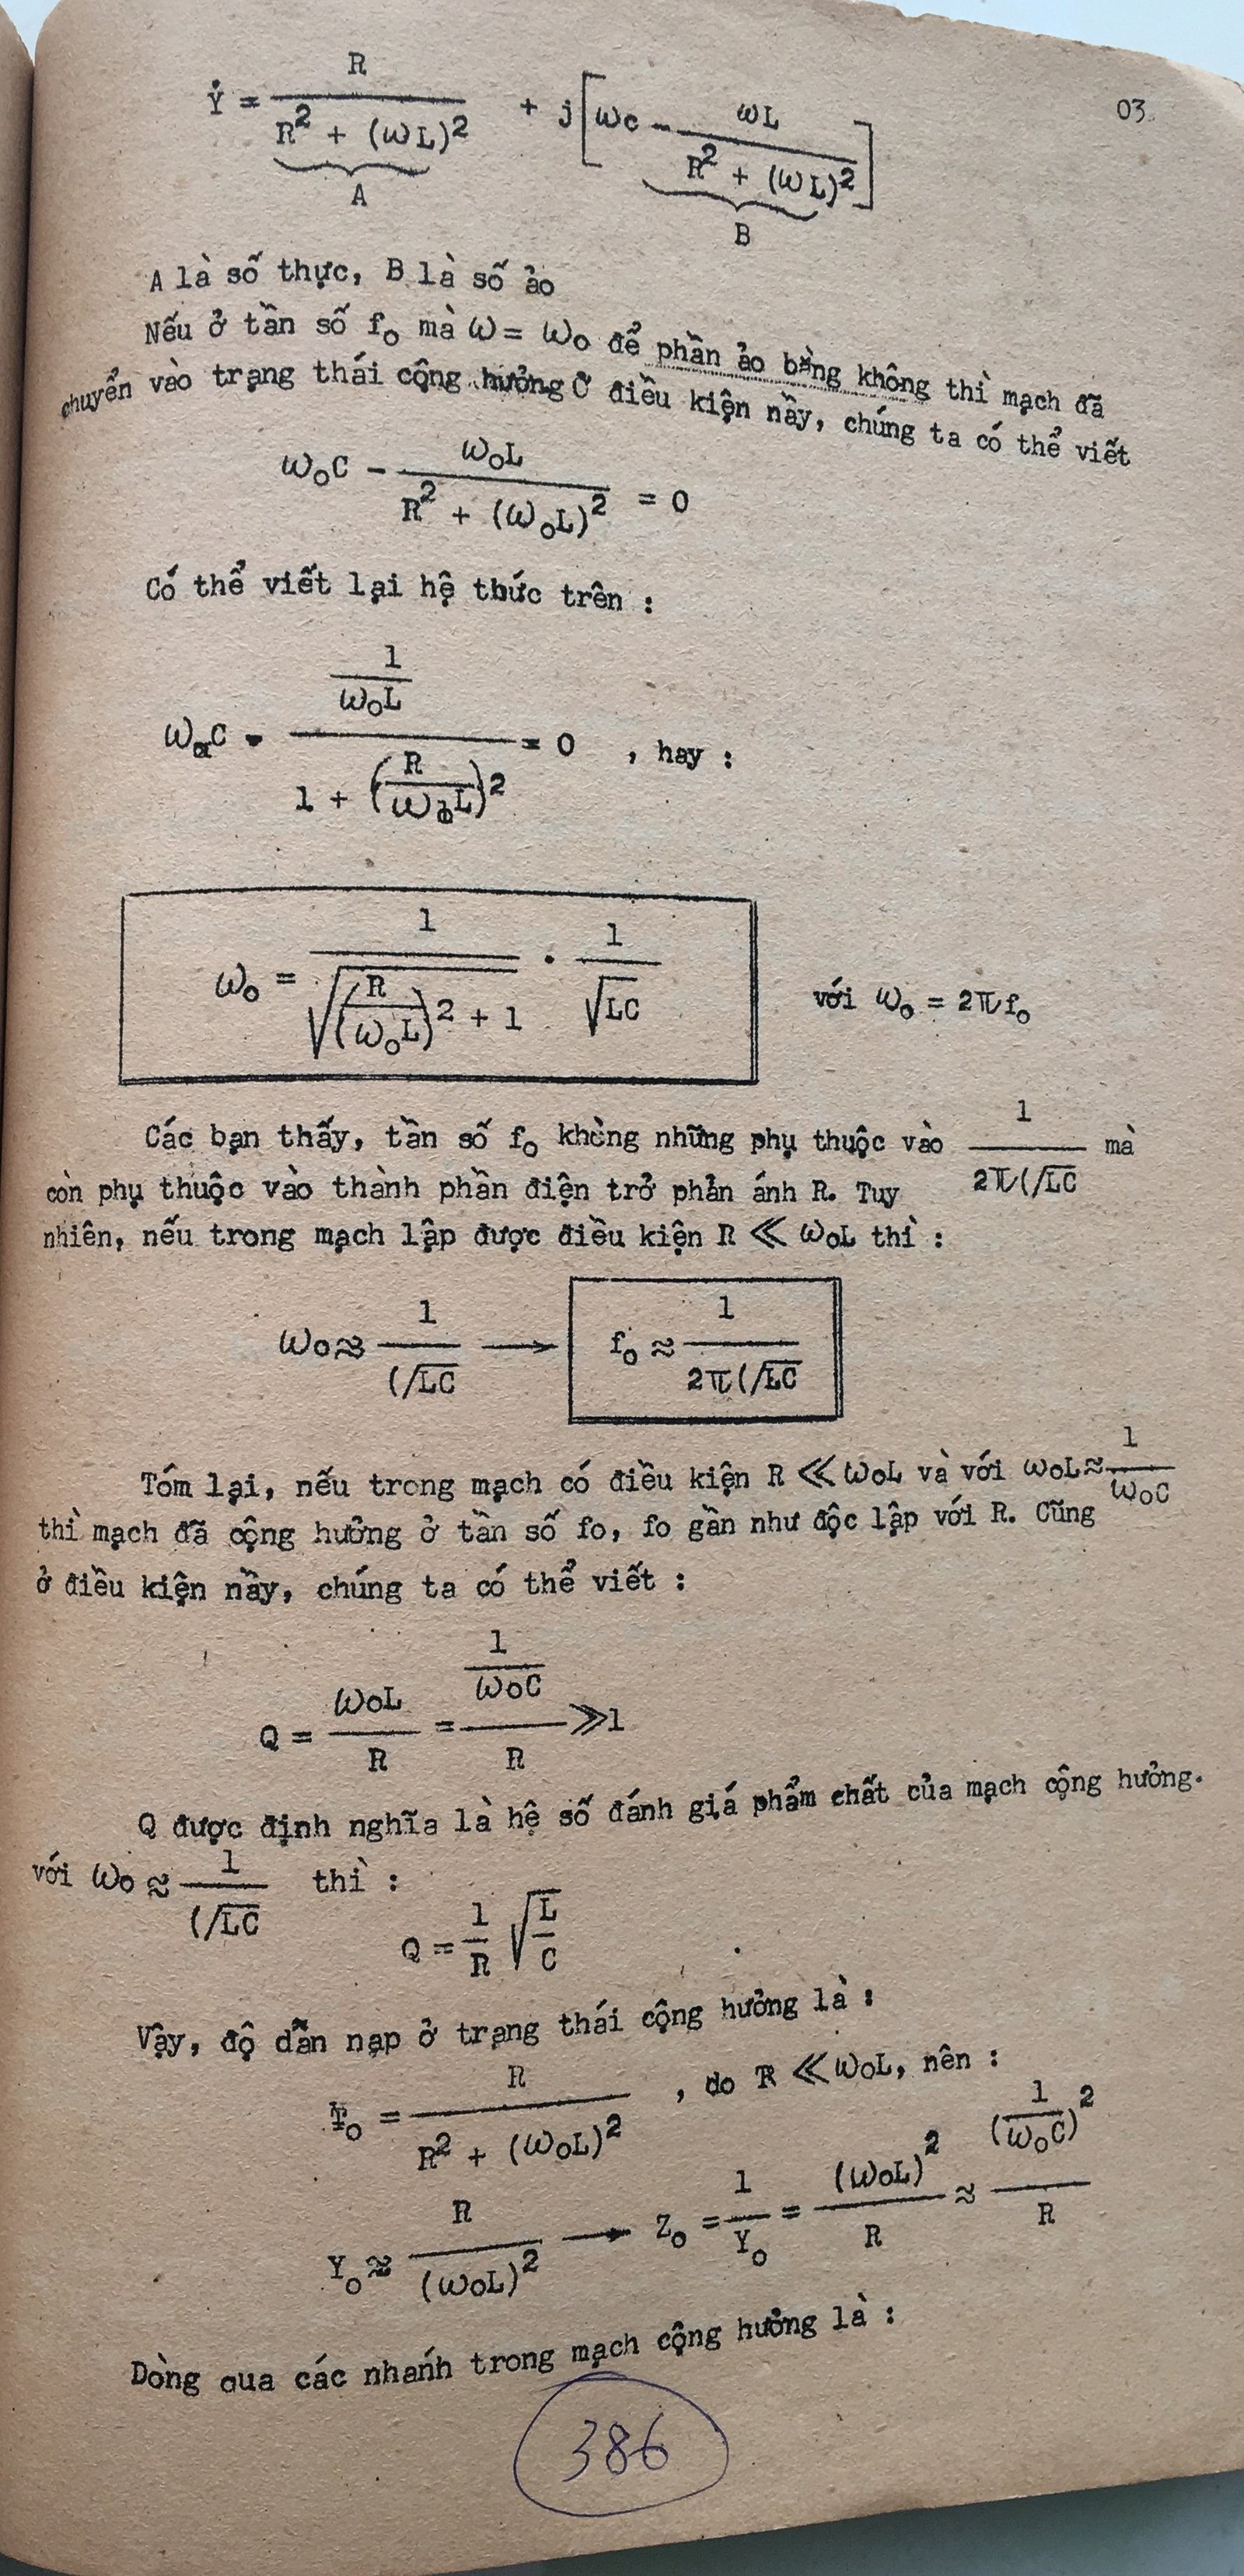 03
Ẏ = R / (R² + (ωL)²) + j[ωc - ωL / (R² + (ωL)²)]
A B
A là số thực, B là số ảo
Nếu ở tần số f₀ mà ω = ω₀ để phần ảo bằng không thì mạch đã
chuyển vào trạng thái cộng hưởng Ở điều kiện nầy, chúng ta có thể viết
ω₀C - ω₀L / (R² + (ω₀L)²) = 0
Có thể viết lại hệ thức trên :
ω₀C - (1 / ω₀L) / (1 + (R / ω₀L)²) = 0 , hay :
ω₀ = 1 / √((R / ω₀L)² + 1) · 1 / √LC với ω₀ = 2πf₀
Các bạn thấy, tần số f₀ không những phụ thuộc vào 1 / 2π√LC mà
còn phụ thuộc vào thành phần điện trở phản ánh R. Tuy
nhiên, nếu trong mạch lập được điều kiện R ≪ ω₀L thì :
ω₀ ≈ 1 / √LC ⟶ f₀ ≈ 1 / 2π√LC
Tóm lại, nếu trong mạch có điều kiện R ≪ ω₀L và với ω₀L ≈ 1 / ω₀C
thì mạch đã cộng hưởng ở tần số fo, fo gần như độc lập với R. Cũng
ở điều kiện nầy, chúng ta có thể viết :
Q = ω₀L / R = (1 / ω₀C) / R ≫ 1
Q được định nghĩa là hệ số đánh giá phẩm chất của mạch cộng hưởng.
với ω₀ ≈ 1 / √LC thì :
Q = 1/R √(L/C)
Vậy, độ dẫn nạp ở trạng thái cộng hưởng là :
Y₀ = R / (R² + (ω₀L)²) , do R ≪ ω₀L, nên :
Y₀ ≈ R / (ω₀L)² ⟶ Z₀ = 1 / Y₀ = (ω₀L)² / R ≈ (1 / ω₀C)² / R
Dòng qua các nhánh trong mạch cộng hưởng là :
386